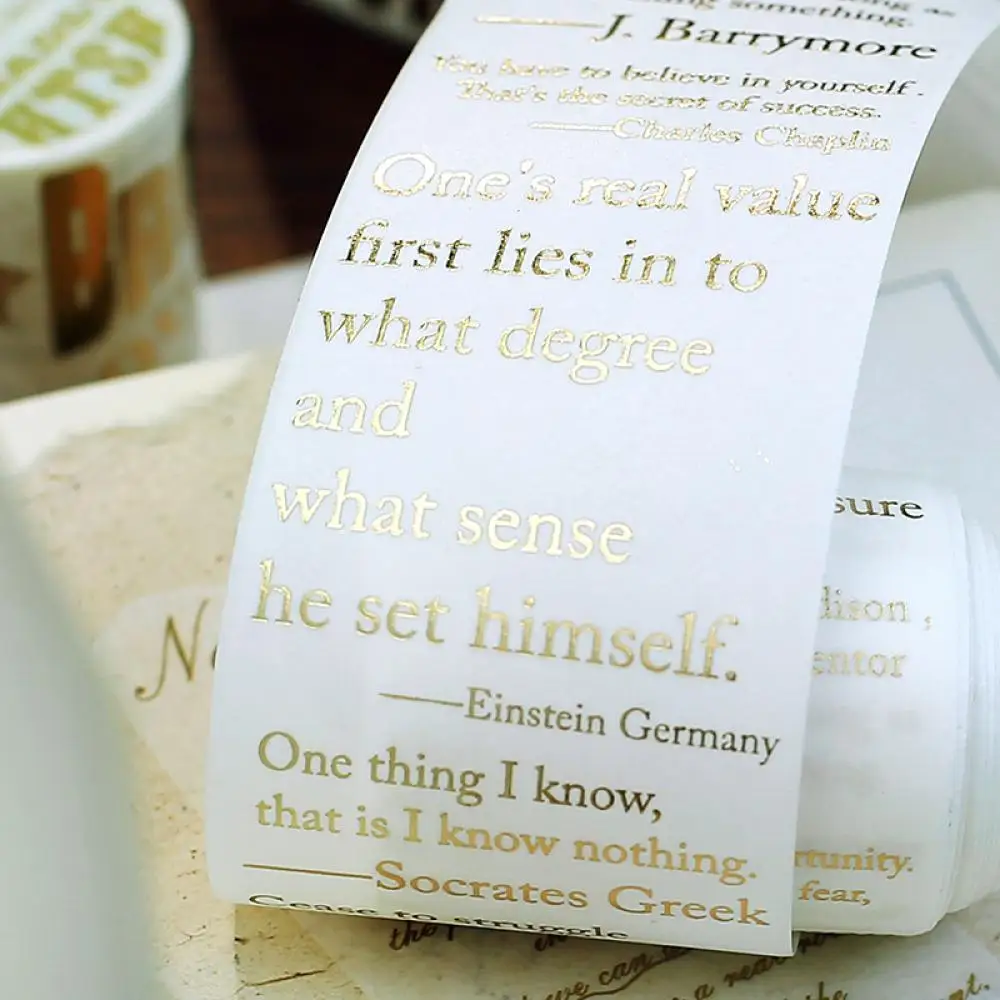 something.
——J. Barrymore
You have to believe in yourself.
That's the secret of success.
——Charles Chaplin
One's real value
first lies in to
what degree
and
what sense
he set himself.
——Einstein Germany
One thing I know,
that is I know nothing.
——Socrates Greek
Cease to struggle
sure
dison ,
entor
rtunity.
fear,
N
the
we can
a near
the